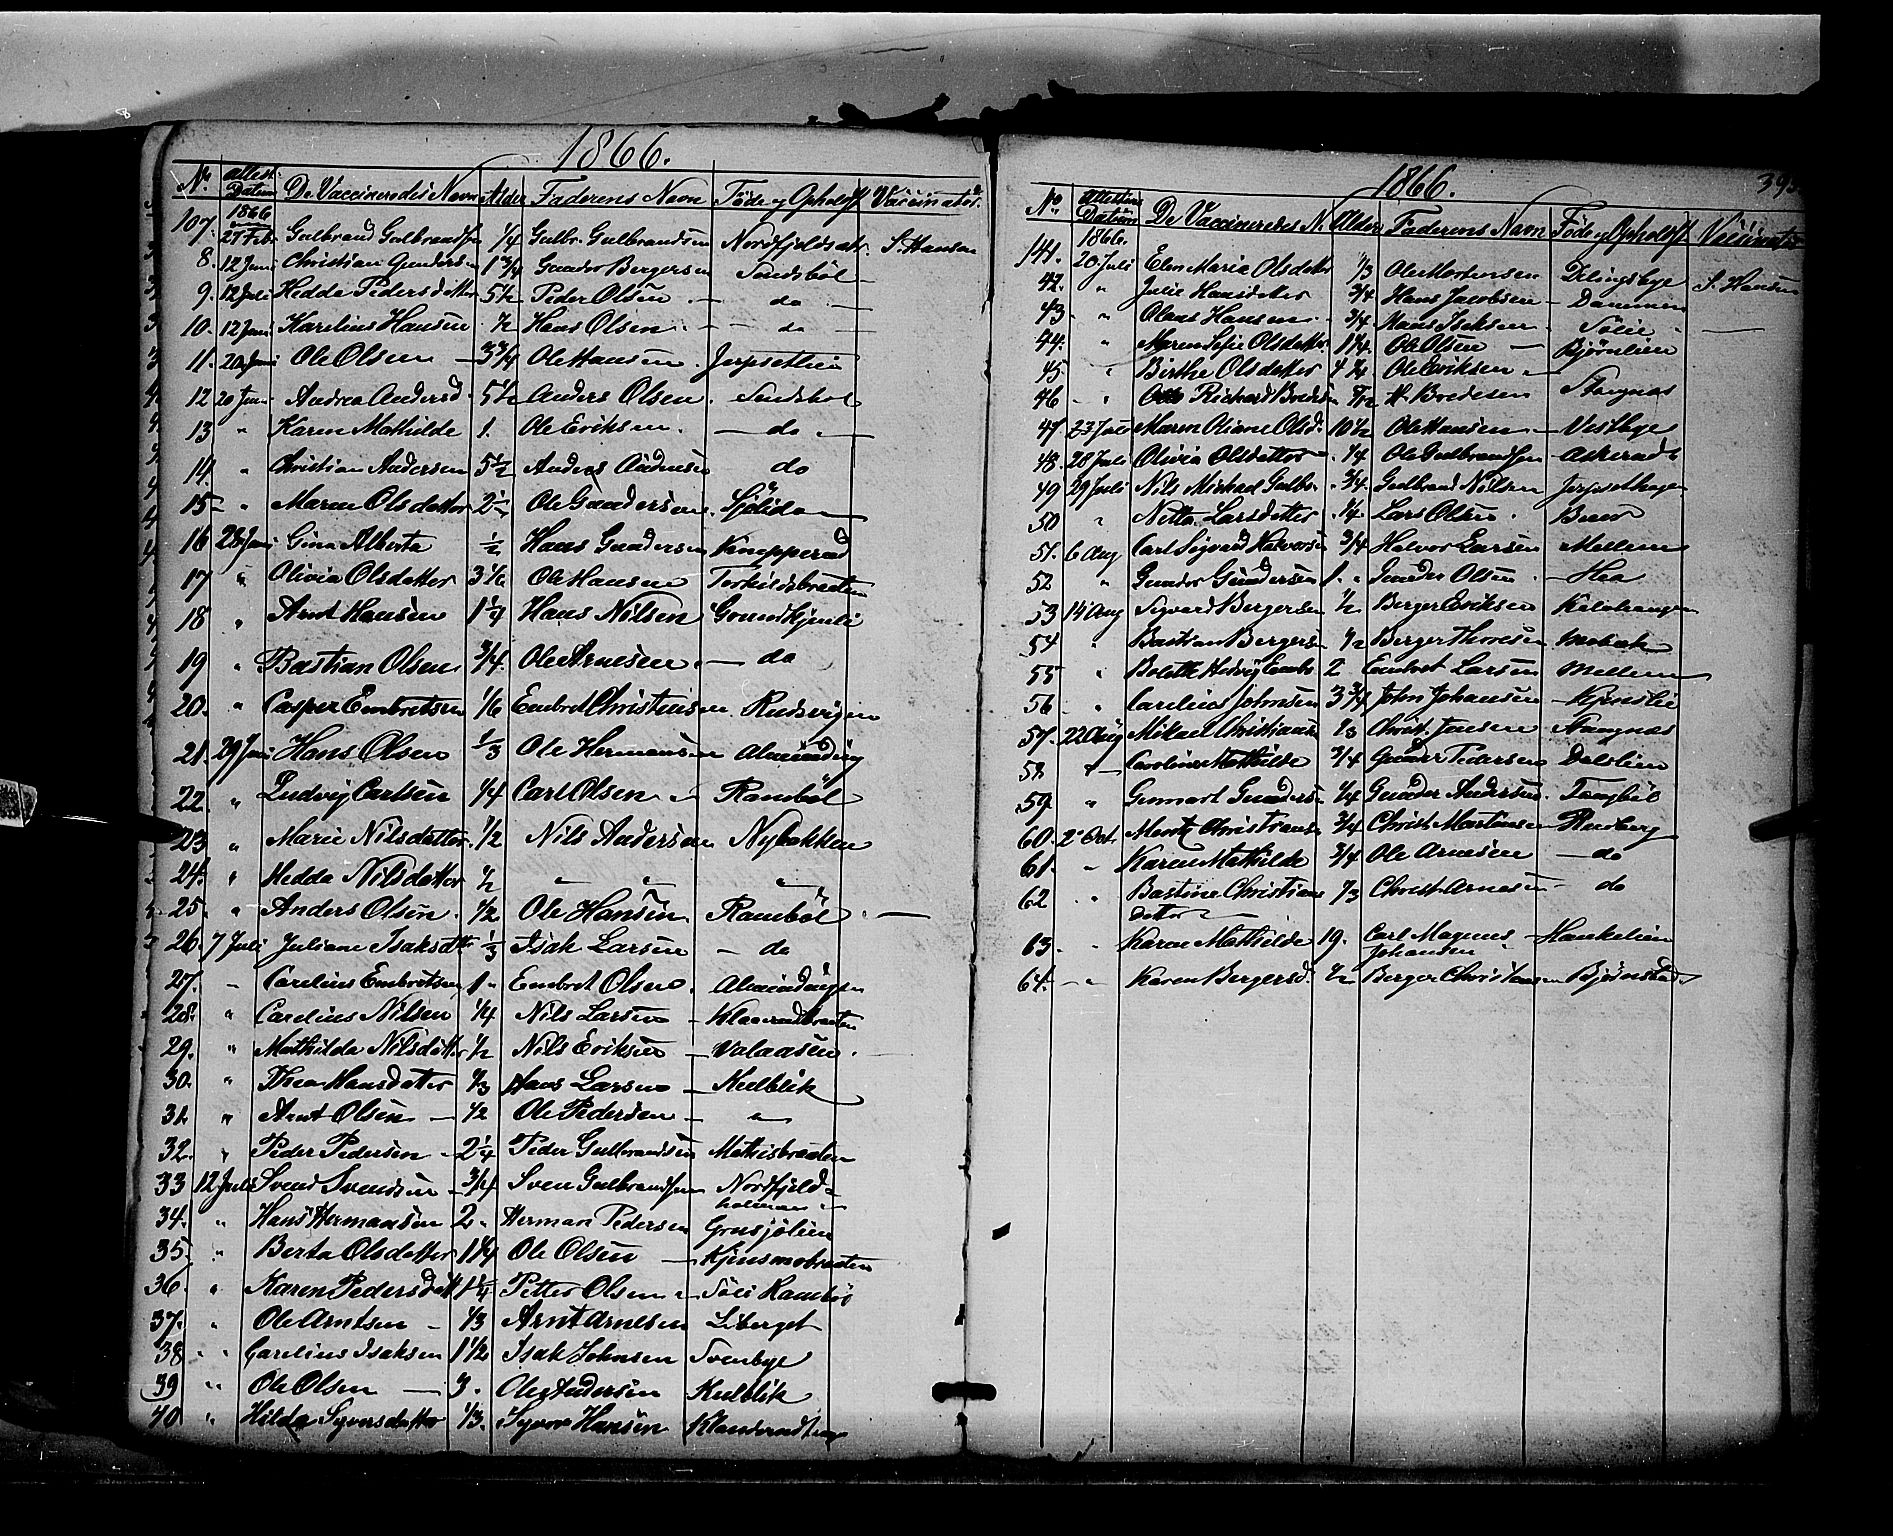 1866.
No. Attest. Datum De Vaccineredes Navn Alder Faderens Navn Föde og Opholdst. Vaccinatör.
1866
107. 27 Feb. Gulbrand Gulbrandsen 1/4 Gulbr. Gulbrandsen S. Hansen
8. 12 Juni Christian Gundersen 1 3/4 Gunder Bergersen Sandsböl —
9. 12 Juli Hedda Pedersdatter 5 1/2 Peder Olsen — do —
10. 12 Juni Karelius Hansen 1/2 Hans Olsen — do —
11. 20 Juni Ole Olsen — 3 3/4 Ole Hansen. Jerpsetlien
12 20 Juni Andrea Andersd. 5 1/2 Anders Olsen. Sandsböl
13 " Karen Mathilde 1. Ole Eriksen. — do —
14. " Christian Andersen 5 1/2 Anders Andersen do
15 — " Maren Olsdatter 2 1/2 Ole Gundersen. Sjölida —
16 28 Juni Gina Alberta 1/2 Hans Gundersen Knapperud
17 " Olivia Olsdatter 3 1/6 Ole Hansen Torkildsbraaten
18 " Arnt Hansen 1 1/4 Hans Nilsen Grundtjenli
19 " Bastian Olsen 3/4. Ole Arnesen. — do
20. " Casper Embretsen 1/6 Embret Christiansen Rudsvigen
21. 29 Juni Hans Olsen 1/3 Ole Hermansen Alminding
22. " Ludvig Carlsen 1/4 Carl Olsen Ramböl
23 " Marie Nilsdatter. 1/2 Nils Andersen Nybakken
24. " Hedda Nilsdatter 1/2 " "
25. " Anders Olsen. 1/2 Ole Hansen Ramböl —
26. 7 Juli Juliane Isaksdtr. 1/3 Isak Larsen — do
27. — Carelius Embretsen 1 — Embret Olsen. Almindingen
28. " Carelius Nilsen 1/4 Nils Larsen — Klaverudbraaten
29. " Mathilda Nilsdatter 1/2 Nils Eriksen — Valaasen.
30. " Thea Hansdatter 1/3 Hans Larsen — Kulblik
31. " Arnt Olsen — 1/2 Ole Pedersen — "
32. " Peder Pedersen 2 1/4 Peder Gulbrandsen Mathisbraaten
33 12 Juli Svend Svendsen — 3/4 Sven Gulbrandsen Nordfjeld-
holmen
34. " Hans Hermansen 2. Herman Pedersen Grusjölien
35. " Berta Olsdatter 1 1/4 Ole Olsen — Kjensmobraaten
36. " Karen Pedersdatt 1 1/4 Petter Olsen Söli Ramböl
37. " Ole Arntsen — 1/3 Arnt Arnesen Liberget
38 " Carelius Isaksen 1 1/2 Isak Johnsen Svenbye
39 " Ole Olsen — 3. Ole Andersen Kulblik
40 " Hilda Syversdatter 1/3. Syver Hansen
1866. 393
No Attestens Datum De Vaccineredes N. Alder Faderens Navn Föde og Opholdst Vaccinatör
1866.
141. 20 Juli Elen Maria Olsdatter 1/3 Ole Mortensen Elingsbye S. Hansen
42. " Julie Hansdatter 3/4 Hans Jacobsen — Dammen
43 " Olaus Hansen 3/4 Hans Isaksen Sölie —
44. " Maren Sofie Olsdatter. 1 1/4 Ole Olsen — Björnlien
45 " Birthe Olsdatter 4 1/2 Ole Eriksen —
46 " Otto Richard Bredesen H. Bredesen Stangnæs
47. 23 Juli Maren Oliane Olsd. 10 1/2 Ole Hansen — Vestbye
48. 28 Juli Olivia Olsdatter 1/4 Ole Gulbrandsen Askerud
49 29 Juli Nils Michael Gulbr. 3/4. Gulbrand Nilsen Jerpsethagen
50 " Netta Larsdatter 1/4 Lars Olsen.
51. 6 Aug Carl Sigvard Halvorsen 3/4 Halvor Larsen Mellem
52 " Gunder Gundersen 1. Gunder Olsen — Hea
53 14 Aug Sigvard Bergersen 1/2 Berger Eriksen
54 " Bastian Bergers 1/2 Berger Thoresen Mobæk
55 " Bolette Hedvig Embr. 2 Embret Larsen Mellem
56 " Carelius Johnsen 3 3/4 John Johansen — Kjenslie
57. 22 Aug Mikael Christiansen 1/3 Christ. Jensen Stangnæs
58 " — Caroline Mathilde 3/4 Gunder Pedersen Dalslien
59. " Gunnart Gunders 1/4 Gunder Andersen. Tangböl
60. 2 Oct. Moretz Christians 3/4 Christ. Martinsen Rudberg
61. " Karen Mathilde 3/4 Ole Arnesen — do
62 " Bastine Christians
datter 1/3 Christ. Arnesen — do
63. " Karen Mathilde 19. Carl Magnus
Johansen — Hankelien
64. " Karen Bergersd. 1/2 Berger Christiansen Björnstad